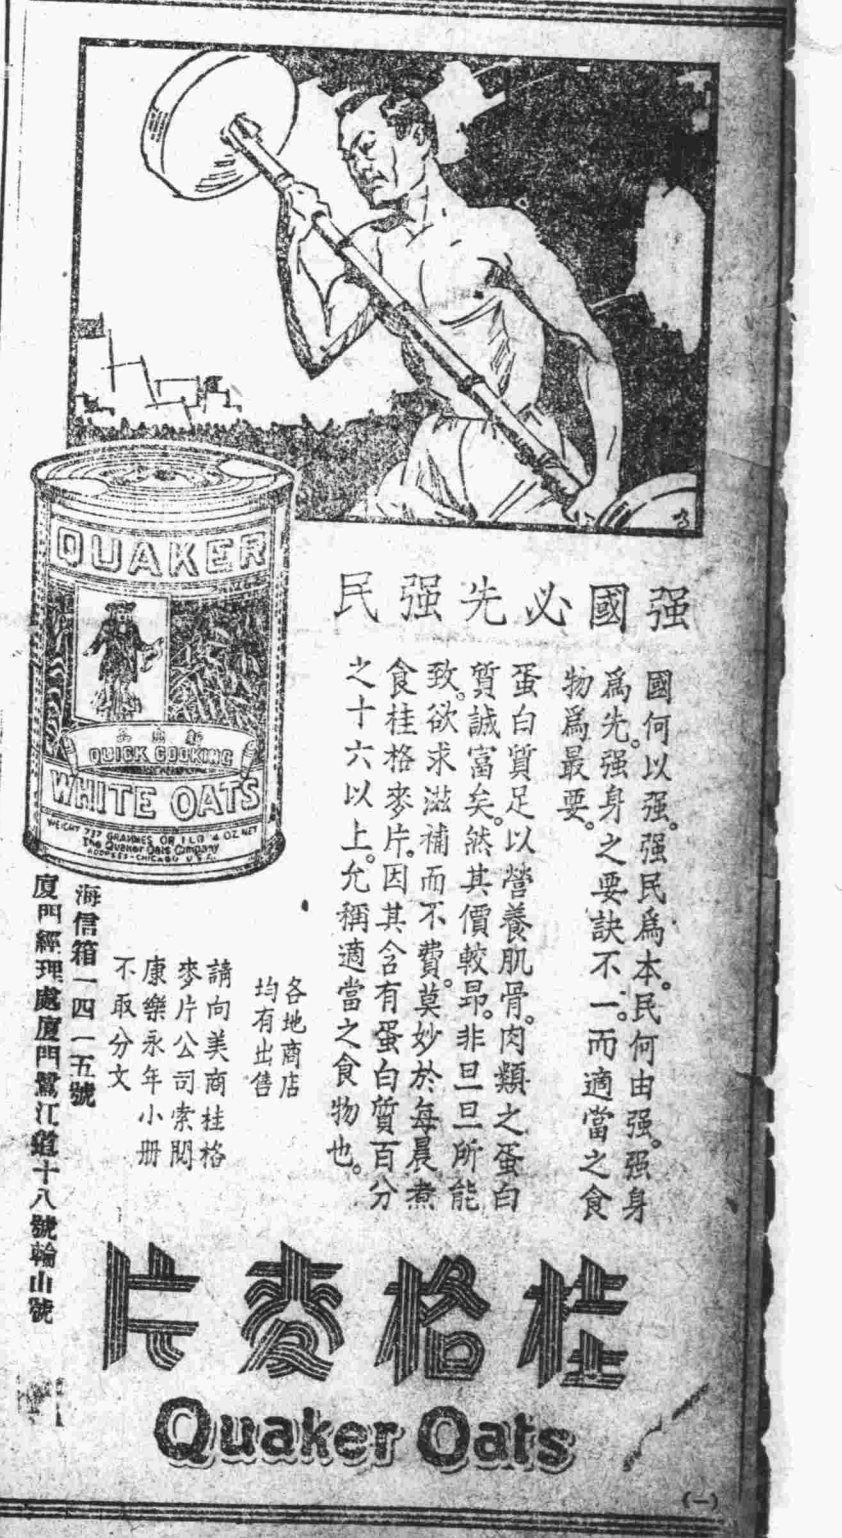 强國必先强民
國何以强。强民爲本。民何由强。强身
爲先。强身之要訣不一。而適當之食
物爲最要。
蛋白質足以營養肌骨。肉類之蛋白
質誠富矣。然其價較昂。非旦旦所能
致。欲求滋補而不費。莫妙於每晨煮
食桂格麥片。因其含有蛋白質百分
之十六以上。允稱適當之食物也。
各地商店
均有出售
請向美商桂格
麥片公司索閱
康樂永年小册
不取分文
海信箱一四一五號
廈門經理處廈門鷺江道十八號輪山號
QUAKER
QUICK COOKING
WHITE OATS
WEIGHT 737 GRAMMES OR 1 LB 4 OZ NET
The Quaker Oats Company
ADDRESS-CHICAGO U.S.A.
桂格麥片
Quaker Oats
(一)